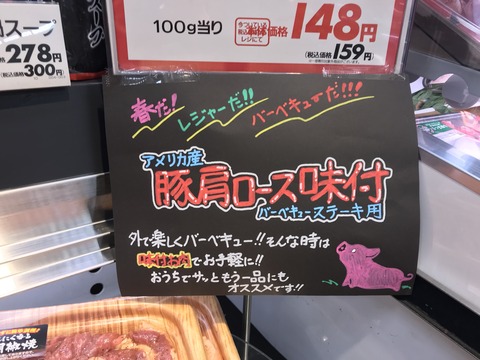 スープ
278円
(税込価格)300円
100g当り
本体価格
148円
(税込価格)
159円
春だ!
レジャーだ!!
バーベキューだ!!!
アメリカ産
豚肩ロース味付
バーベキューステーキ用
外で楽しくバーベキュー!!そんな時は
味付お肉でお手軽に!!
おうちでサッともう一品にも
オススメです!!